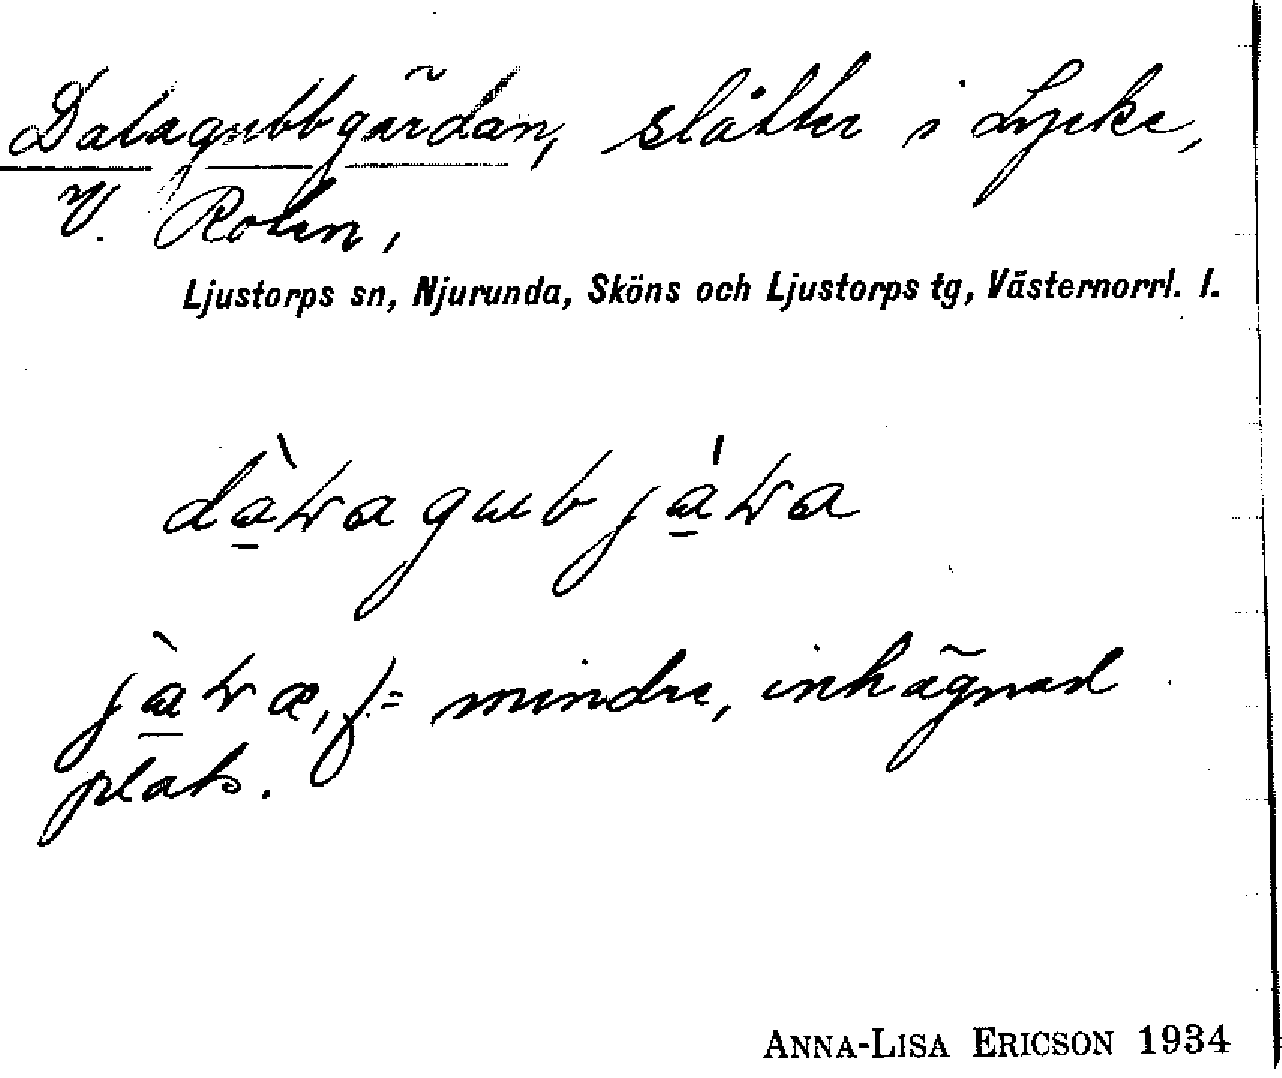 Dalagubbgärdan, slåtter i Lycke,
V. Rolen,
Ljustorps sn, Njurunda, Sköns och Ljustorps tg, Västernorrl. l.
plats.
f.= mindre, inhägnad
ANNA-LISA ERICSON 1934